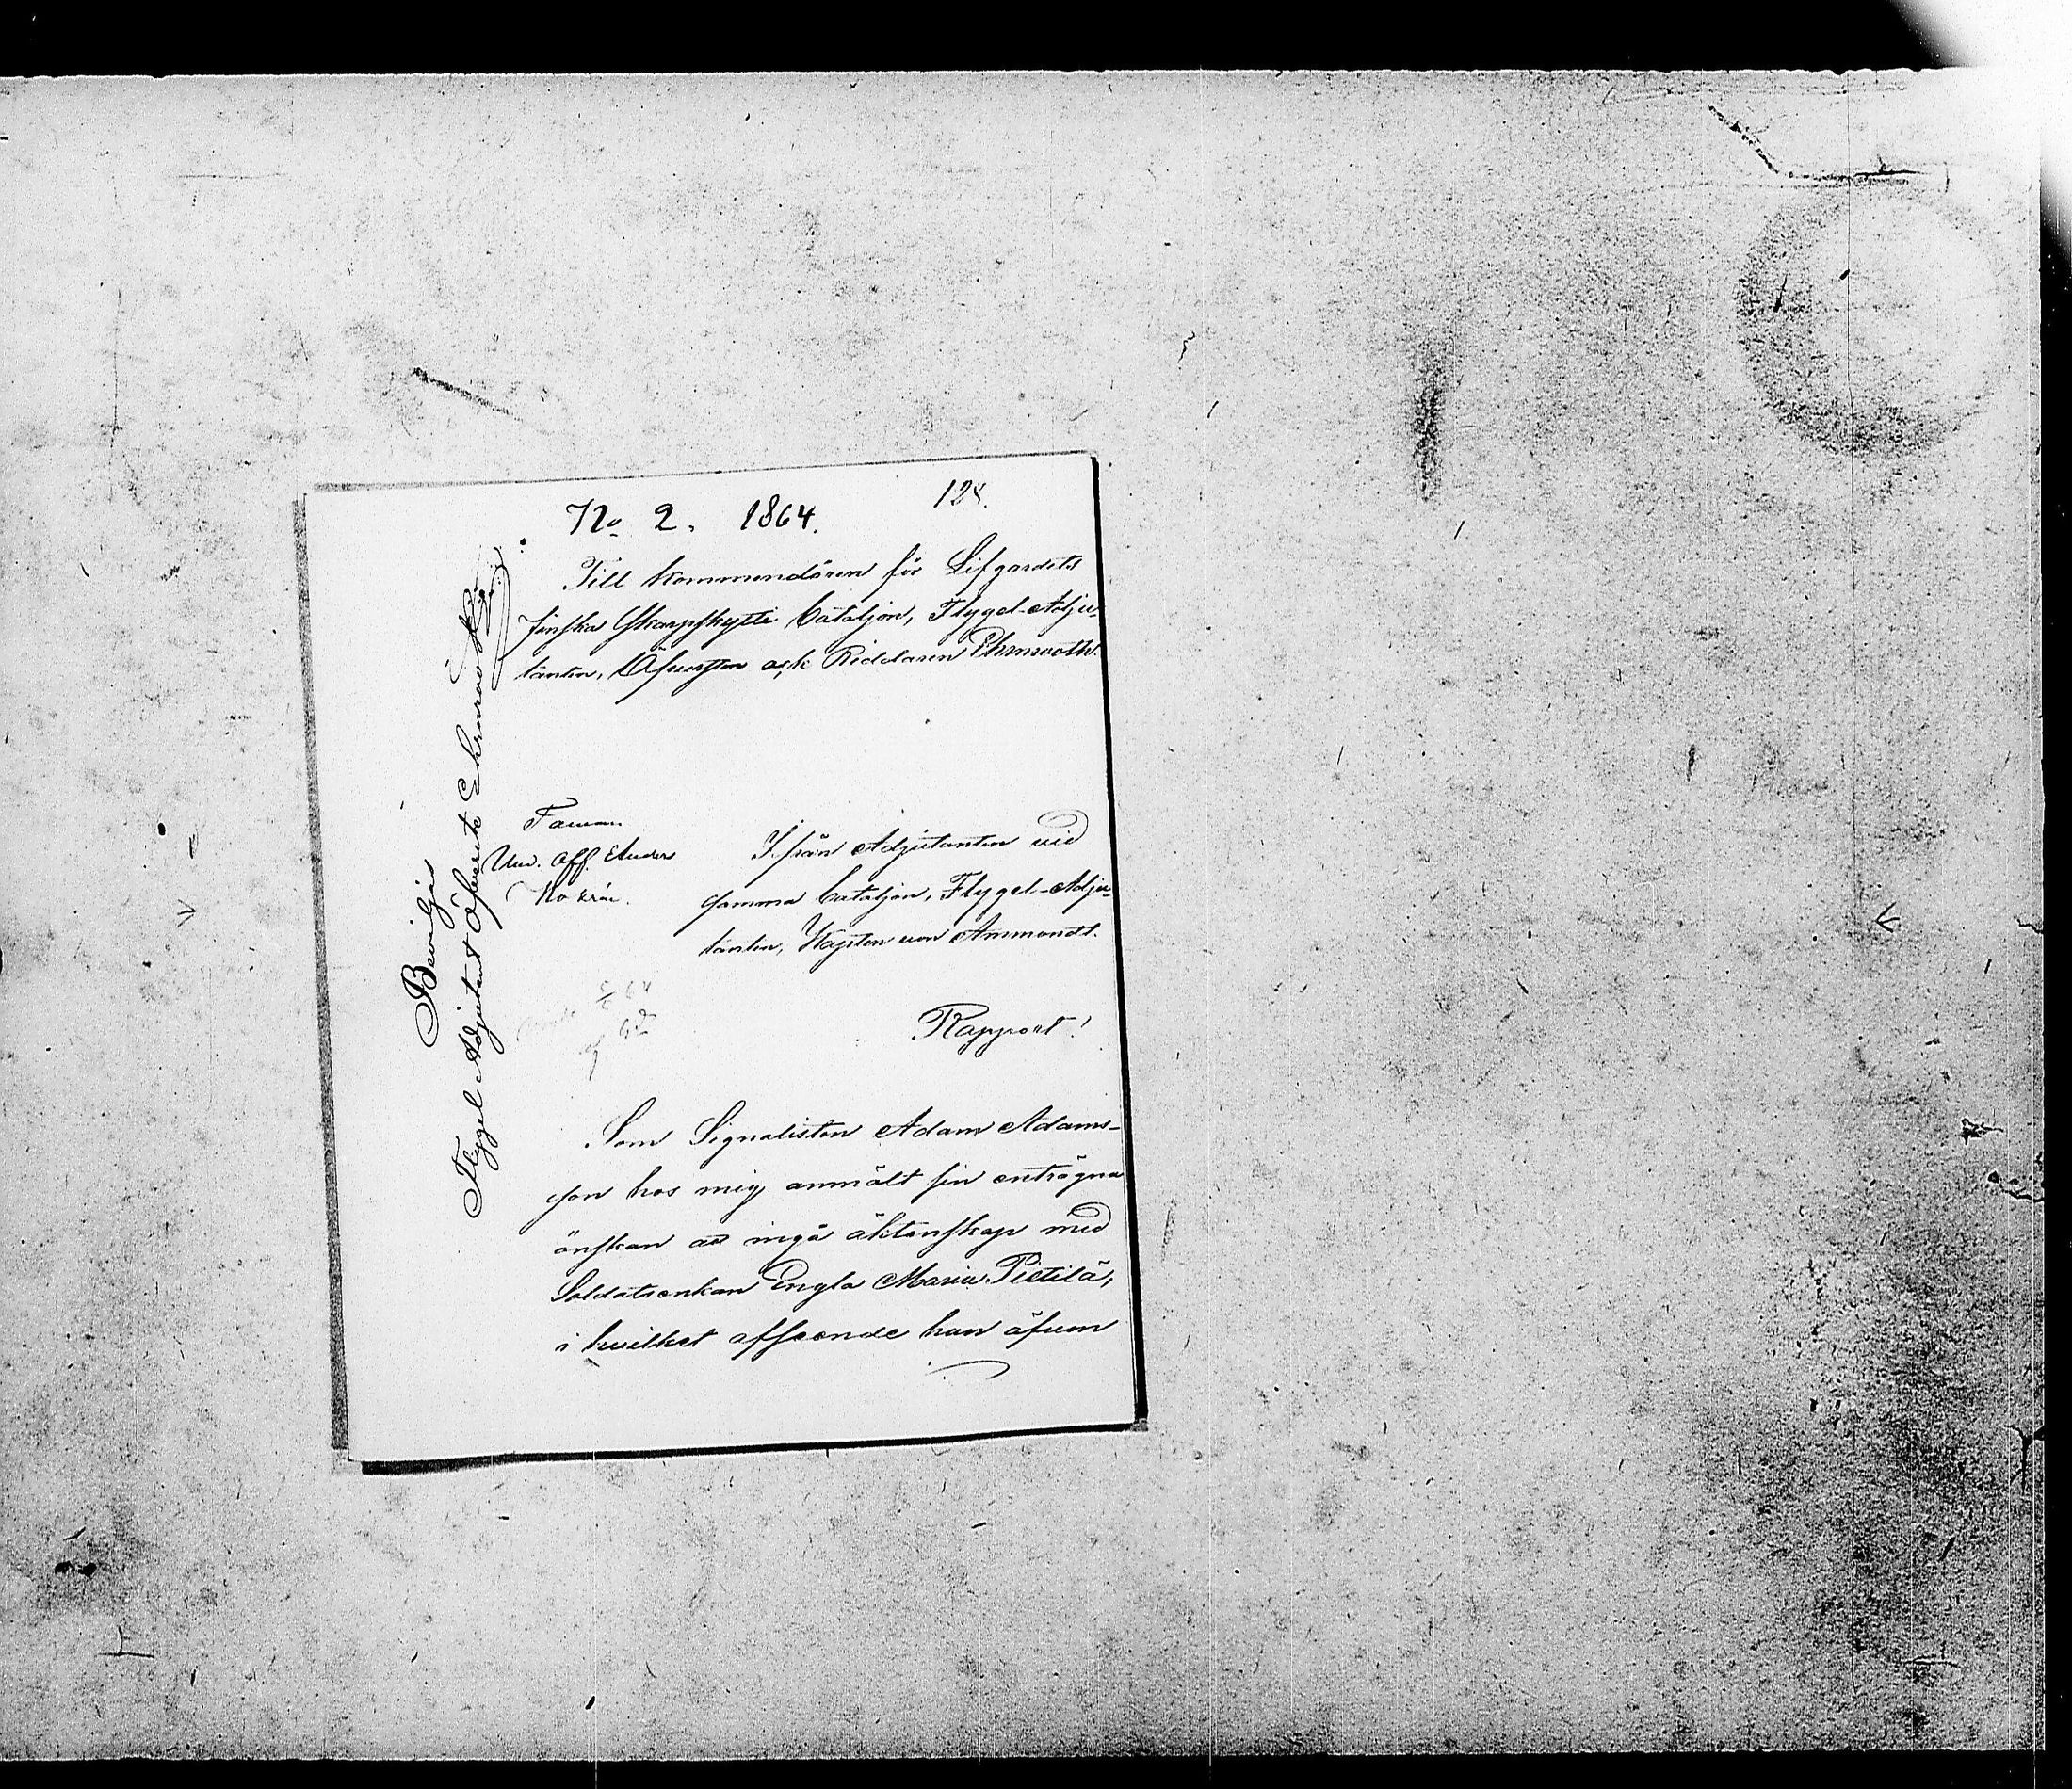 No 2. 1864.
128.
Till Kommendören för Lifgardets
finska Skarpskytte Bataljon, Flygel-Adju-
tanten, Öfversten och Riddaren Ehrnrooth.
Beviljas
Flygel Adjutant Öfverste Ehrnrooth
Und. Off. Anders
Ifrån Adjutanten vid
samma Bataljon, Flygel-Adju-
tanten, Kapten von Ammondt.
64
af
Rapport!
Som Signalisten Adam Adams-
son hos mig anmält sin enträgna
önskan att ingå äktenskap med
Soldatsenkan Engla Maria Pietilä,
i hvilket afseende han äfven